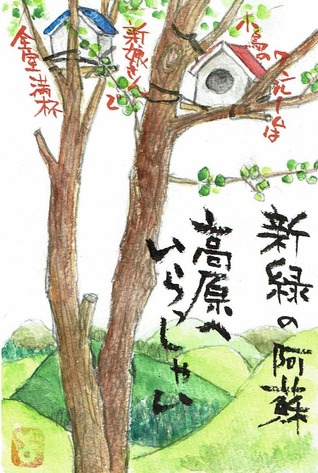 小鳥の
ワンルームは
新婚さんで
全室満杯
新緑の阿蘇
高原へ
いらっしゃい